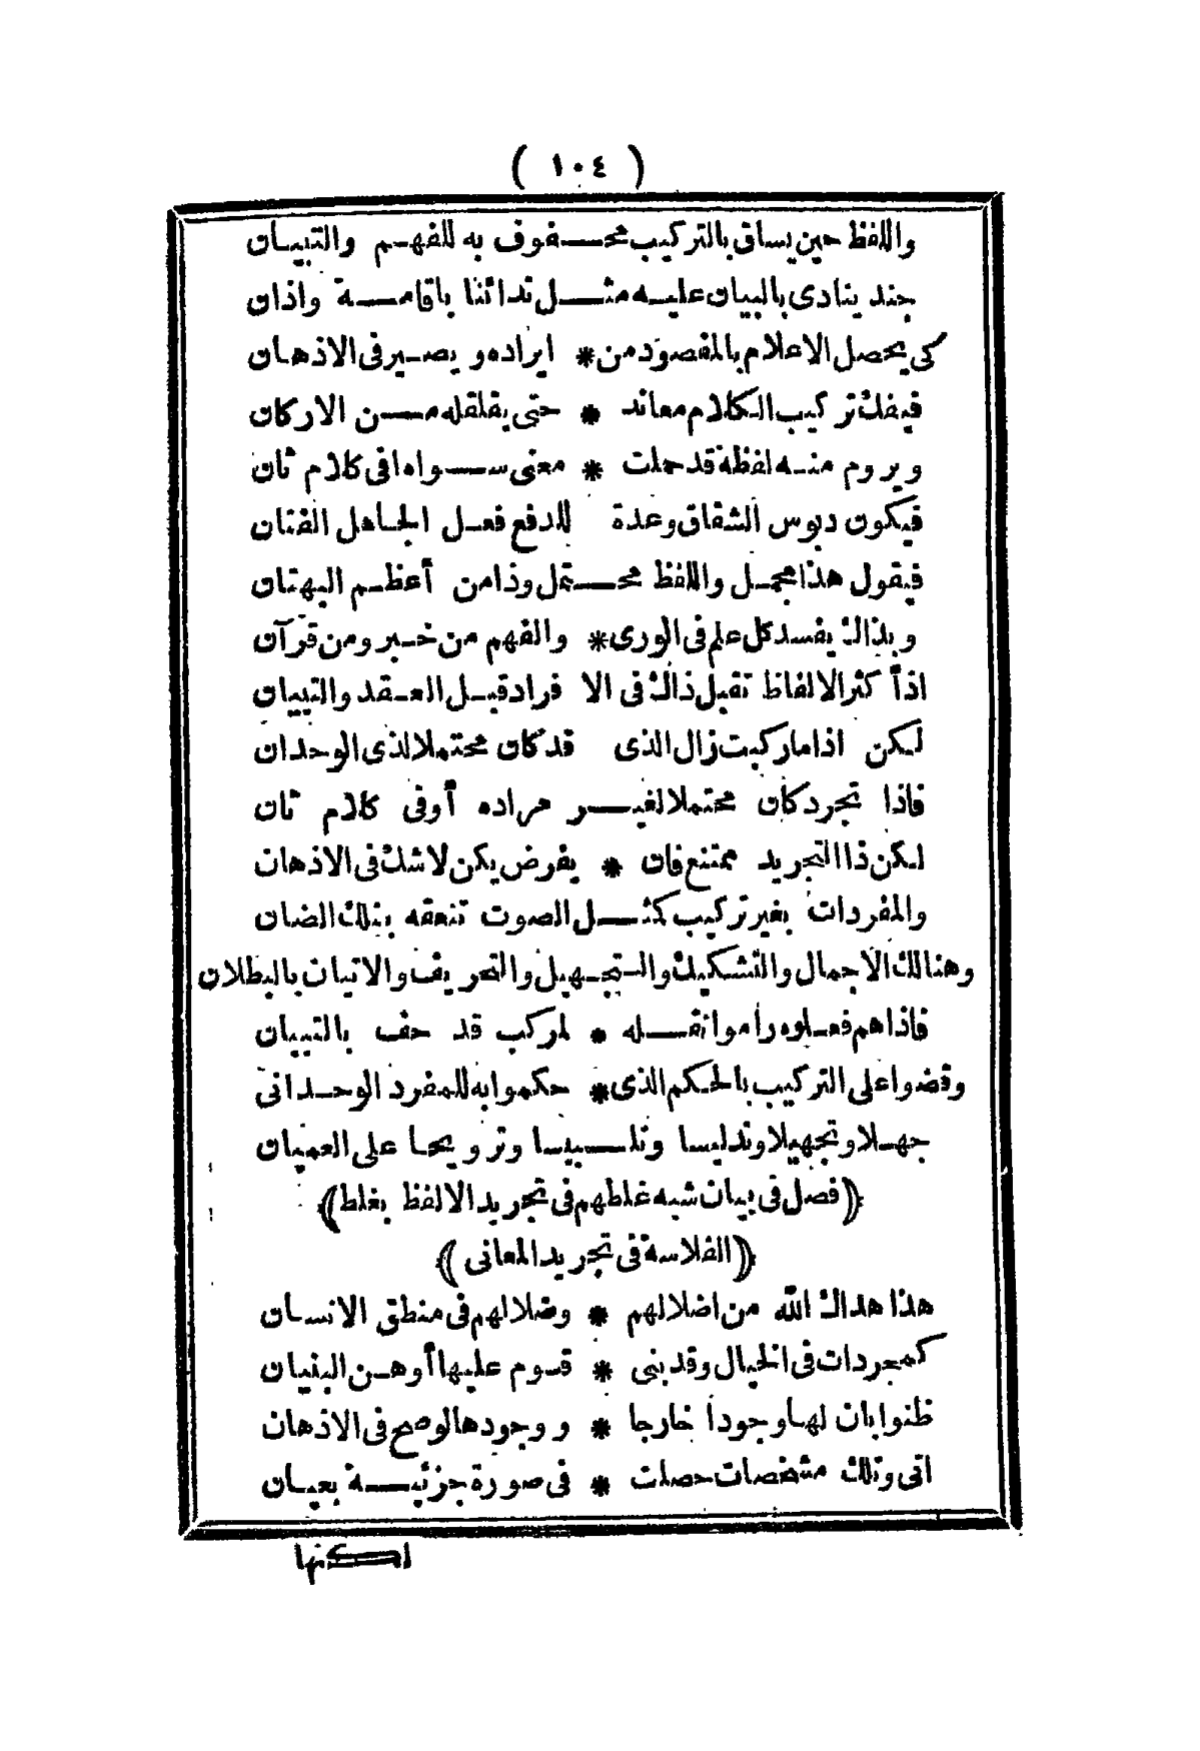 ( ١٠٤ )
واللفظ حين يساق بالتركيب محفوف به للفهم والتبيان
جند ينادى بالبيان عليه مثل ندائنا باقامة واذان
كى يحصل الاعلام بالمقصود من * ايراده ويصير فى الاذهان
فيفك تركيب الكلام معاند * حتى يقلقله من الاركان
ويروم منه لفظة قد حملت * معنى سواه فى كلام ثان
فيكون دبوس الشقاق وعدة للدفع فعل الجاهل الفتان
فيقول هذا مجمل واللفظ محتمل وذا من أعظم البهتان
وبذاك يفسد كل علم فى الورى * والفهم من خبر ومن قرآن
اذأ كثر الالفاظ تقبل ذاك فى الا فراد قبل العقد والتبيان
لكن اذا ما ركبت زال الذى قد كان محتملا لذى الوحدان
فاذا تجرد كان محتملا لغير مراده أوفى كلام ثان
لكن ذا التجريد ممتنع فان * يفرض يكن لاشك فى الاذهان
والمفردات بغير تركيب كمثل الصوت تنعقه بتلك الضان
وهنالك الاجمال والتشكيك والتجهيل والتحريف والاتيان بالبطلان
فاذا هم فعلوه راموا نقله * لمركب قد حف بالتبيان
وقضوا على التركيب بالحكم الذى * حكموا به للمفرد الوحدانى
جهلا وتجهيلا وتدليسا وتلبيسا وترويجا على العميان
﴿فصل فى بيان شبه غلطهم فى تجريد الالفظ بغلط﴾
﴿الفلاسة فى تجريد المعانى﴾
هذا هداك الله من اضلالهم * وضلالهم فى منطق الانسان
كمجردات فى الخيال وقد بنى * قوم عليها أوهن البنيان
ظنوا بان لها وجودا خارجا * ووجودها لو صح فى الاذهان
انى وتلك مشخصات حصلت * فى صورة جزئية بعيان
لكنها